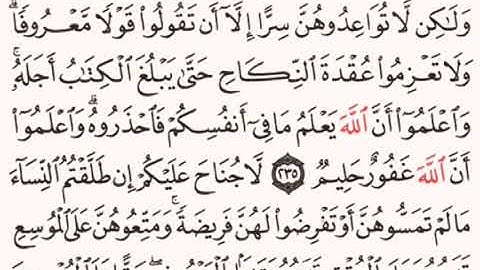 وَلَٰكِن لَّا تُوَاعِدُوهُنَّ سِرًّا إِلَّآ أَن تَقُولُوا۟ قَوْلًا مَّعْرُوفًا ۚ
وَلَا تَعْزِمُوا۟ عُقْدَةَ ٱلنِّكَاحِ حَتَّىٰ يَبْلُغَ ٱلْكِتَٰبُ أَجَلَهُۥ ۚ
وَٱعْلَمُوٓا۟ أَنَّ ٱللَّهَ يَعْلَمُ مَا فِىٓ أَنفُسِكُمْ فَٱحْذَرُوهُ ۚ وَٱعْلَمُوٓا۟
أَنَّ ٱللَّهَ غَفُورٌ حَلِيمٌ ٢٣٥ لَّا جُنَاحَ عَلَيْكُمْ إِن طَلَّقْتُمُ ٱلنِّسَآءَ
مَا لَمْ تَمَسُّوهُنَّ أَوْ تَفْرِضُوا۟ لَهُنَّ فَرِيضَةً ۚ وَمَتِّعُوهُنَّ عَلَى ٱلْمُوسِعِ